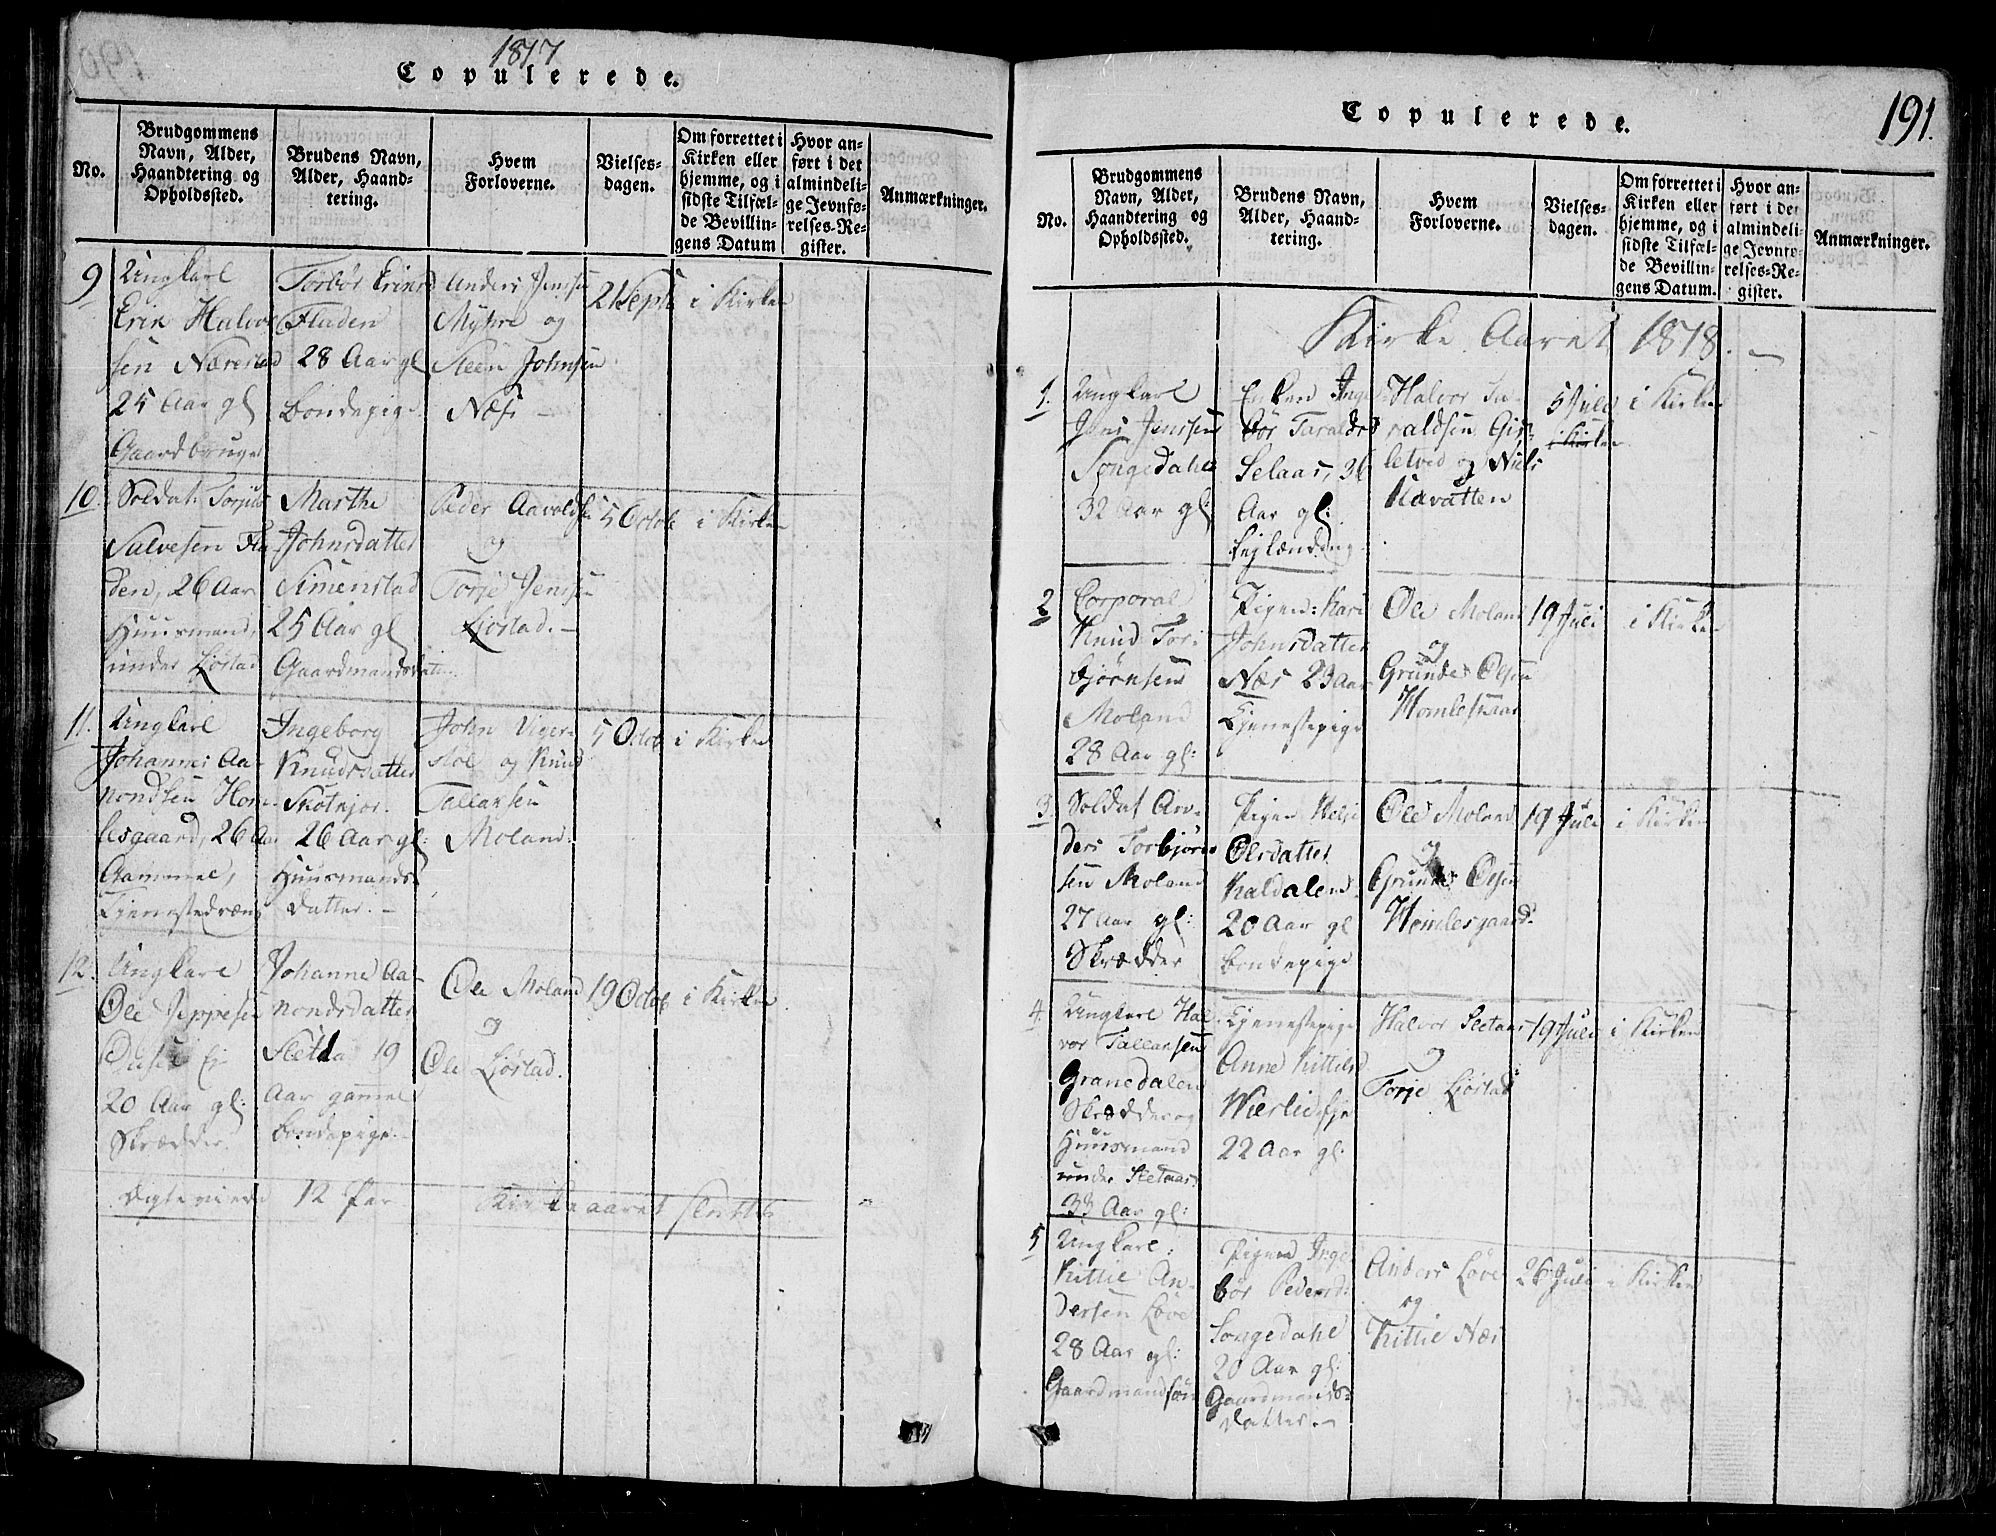 1817
Copulerede.
No.
Brudgommens
Navn, Alder,
Haandtering og
Opholdssted.
Brudens Navn,
Alder, Haand-
tering.
Hvem
Forloverne.
Vielses-
dagen.
Om forrettet i
Kirken eller
hjemme, og i
sidste Tilfæl-
de Bevillin-
gens Datum
Hvor an-
ført i det
almindeli-
ge Jevnfø-
relses-Re-
gister.
Anmærkninger.
9
Ungkarl
Erik Halvor
sen Nærestad
25 Aar gl
Gaardbruger
Torbør Erinsd
Fladen
28 Aar gl
Bondepige.
Anders Jenssen
Myhre og
Steen Johnsen
Næs -
21 Sept
i Kirken
10.
Soldat Torjus
Salvesen Fla
den, 26 Aar
Huusmand,
under Liøstad
Marthe
Johnsdatter
Simenstad
25 Aar gl
Gaardmandsdatter
Peder Aavoldsen
og
Torje Jenssen
Liøstad. -
5 Octob
i Kirken
11.
Ungkarl
Johannes Aa-
nondsen Hom-
lesgaard, 26 Aar
Gammel,
Tjenestedreng
Ingeborg
Knudsdatter
Skotkjær.
26 Aar gl:
Huusmands
datter. -
John Vigere
stol og Knud
Tallaksen
Moland.
5 Octob
i Kirken
12.
Ungkarl
Ole Jeppesen
20 Aar gl:
Skrædder.
Johanne Aa-
nondsdatter
Sletta 19
Aar gammel
bondepige. -
Ole Moland
og
Ole Liøstad.
19 Octob
i Kirken
Ægteviede 12 Par Kirkeaaret sluttet
191.
Copulerede.
No.
Brudgommens
Navn, Alder,
Haandtering og
Opholdssted.
Brudens Navn,
Alder, Haand-
tering.
Hvem
Forloverne.
Vielses-
dagen.
Om forrettet i
Kirken eller
hjemme, og i
sidste Tilfæl-
de Bevillin-
gens Datum.
Hvor an-
ført i det
almindeli-
ge Jevnfø-
relses-Re-
gister.
Anmærkninger.
Kirke Aaret 1818. -
1.
Ungkarl
Jens Jenssen
Songedahl
32 Aar gl:
Enken Inge
bør Taraldsd
Selaas, 36
Aar gl:
Halvor Ta-
raldsen Gis-
letved og Niels
Kavatten
5 Juli
i Kirken
i Kirken
2
Corporal
Knud Tor-
bjørnsen
Moland
28 Aar gl:
Pigen: Kari
Johnsdatter
Næs 23 Aar
Tjenestepige
Ole Moland
og
Grunde Olsen
Homlesgaar
19 Juli
i Kirken
3.
Soldat An-
ders Torbjørn
sen Moland
27 Aar gl:
Skrædder
Pigen Helje
Olsdatter
Kaldalen
20 Aar gl
bondepige
Ole Moland
og
Grunde Olsen
Homlesgaard.
19 Juli
i Kirken
4.
Ungkarl Hal
vor Tallaksen
Granedalen
Skrædder og
Huusmand
under Sletaas
33 Aar gl:
Tjenestepige
Anne Kittilsd
22 Aar gl.
Halvor Sletaas
og
Torje Liøstad
19 Juli
i Kirken
5
Ungkarl:
Kittil An-
dersen Løve
28 Aar gl:
Gaardmandsøn
Pigen Inge
bør Pedersd:
Songedahl
20 Aar gl:
Gaardmands-
datter. -
Anders Løve
og
Kittil Næs
26 Juli
i Kirken